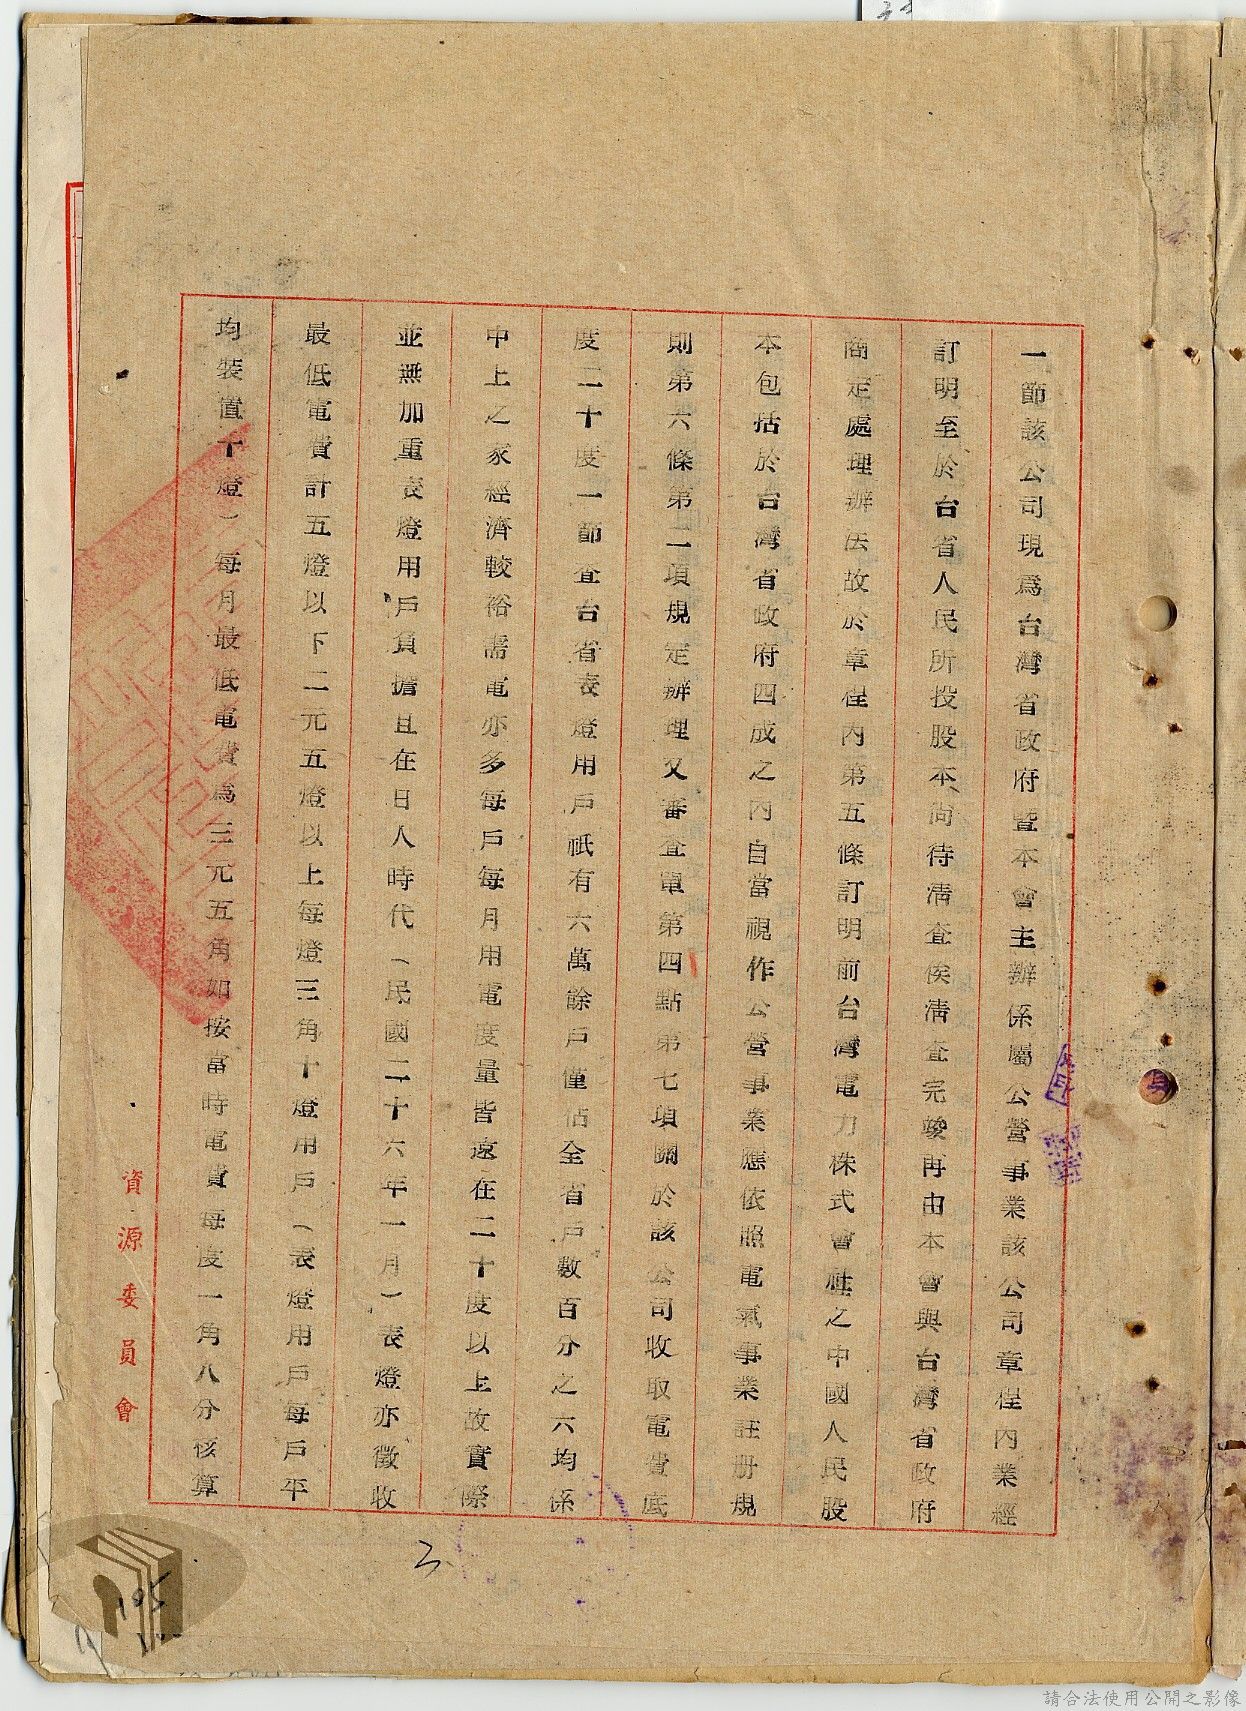 一節該公司現為台灣省政府暨本會主辦係屬公營事業該公司章程內業經
訂明至於台省人民所投股本尚待清查俟清查完竣再由本會與台灣省政府
商定處理辦法故於章程內第五條訂明前台灣電力株式會社之中國人民股
本包括於台灣省政府四成之內自當視作公營事業應依照電氣事業註册規
則第六條第二項規定辦理又審查單第四點第七項關於該公司收取電費底
度二十度一節查台省表燈用戶祇有六萬餘戶僅佔全省戶數百分之六均係
中上之家經濟較裕需電亦多每戶每月用電度量皆遠在二十度以上故實際
並無加重表燈用戶負擔且在日人時代（民國二十六年一月）表燈亦徵收
最低電費計五燈以下二元五燈以上每燈三角十燈用戶（表燈用戶每戶平
均裝置十燈）每月最低電費為三元五角如按當時電費每度一角八分核算
資源委員會
2
105
請合法使用公開之影像